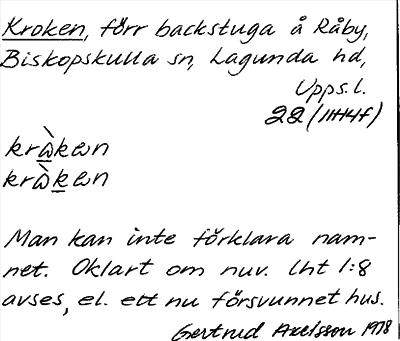 Kroken, förr backstuga å Råby,
Biskopskulla sn, Lagunda hd,
Upps.l.
22 (11H4f)
kràkωn
krὼkωn
Man kan inte förklara nam-
net. Oklart om nuv. lht 1:8
avses, el. ett nu försvunnet hus.
Gertrud Axelsson 1978